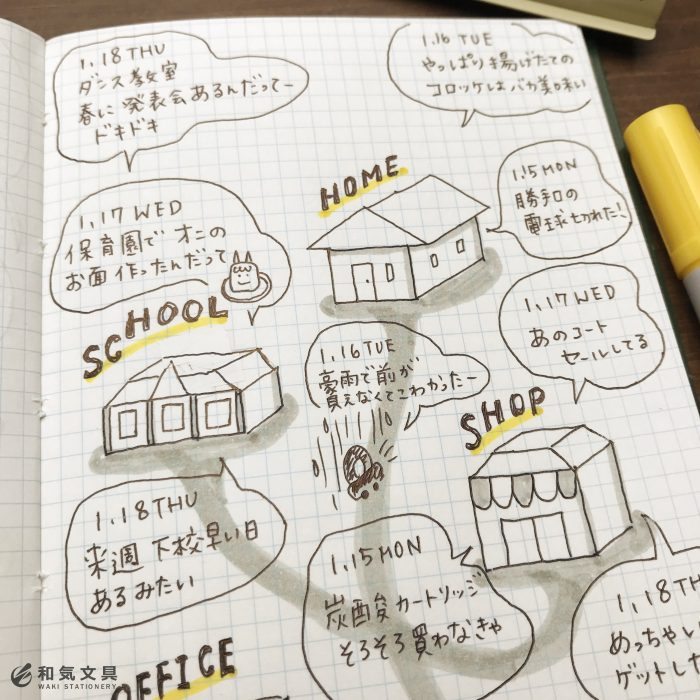 1.18 THU
ダンス教室
春に発表会あるんだってー
ドキドキ
1.16 TUE
やっぱり揚げたての
コロッケはバカ美味い
HOME
1.15 MON
勝手口の
電球切れた!
1.17 WED
保育園でオニの
お面作ったんだって
SCHOOL
1.17 WED
あのコート
セールしてる
1.16 TUE
豪雨で前が
見えなくてこわかったー
SHOP
1.18 THU
来週下校早い日
あるみたい
1.15 MON
炭酸カートリッジ
そろそろ買わなきゃ
1.18 THU
めっちゃい
ゲットした
OFFICE
和気文具
WAKI STATIONERY